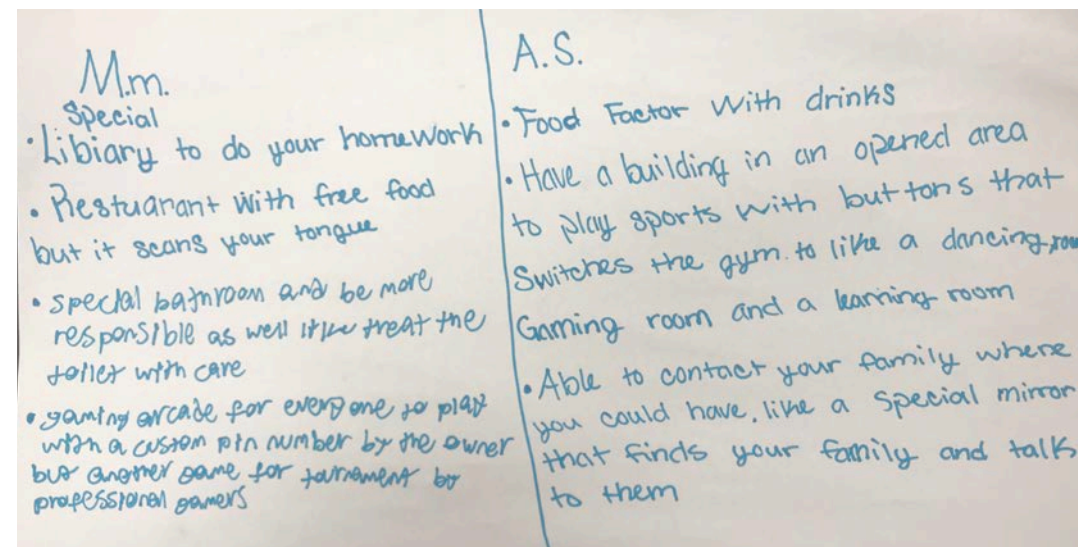 M.m.
Special
• Libiary to do your homework
• Restuarant with free food
but it scans your tongue
• special bathroom and be more
responsible as well like treat the
toilet with care
• gaming arcade for everyone to play
with a custom pin number by the owner
but another game for tournament by
professional gamers
A.S.
• Food Factor With drinks
• Have a building in an opened area
to play sports with buttons that
Switches the gym. to like a dancing,
Gaming room and a learning room
• Able to contact your family where
you could have, like a special mirror
that finds your family and talks
to them